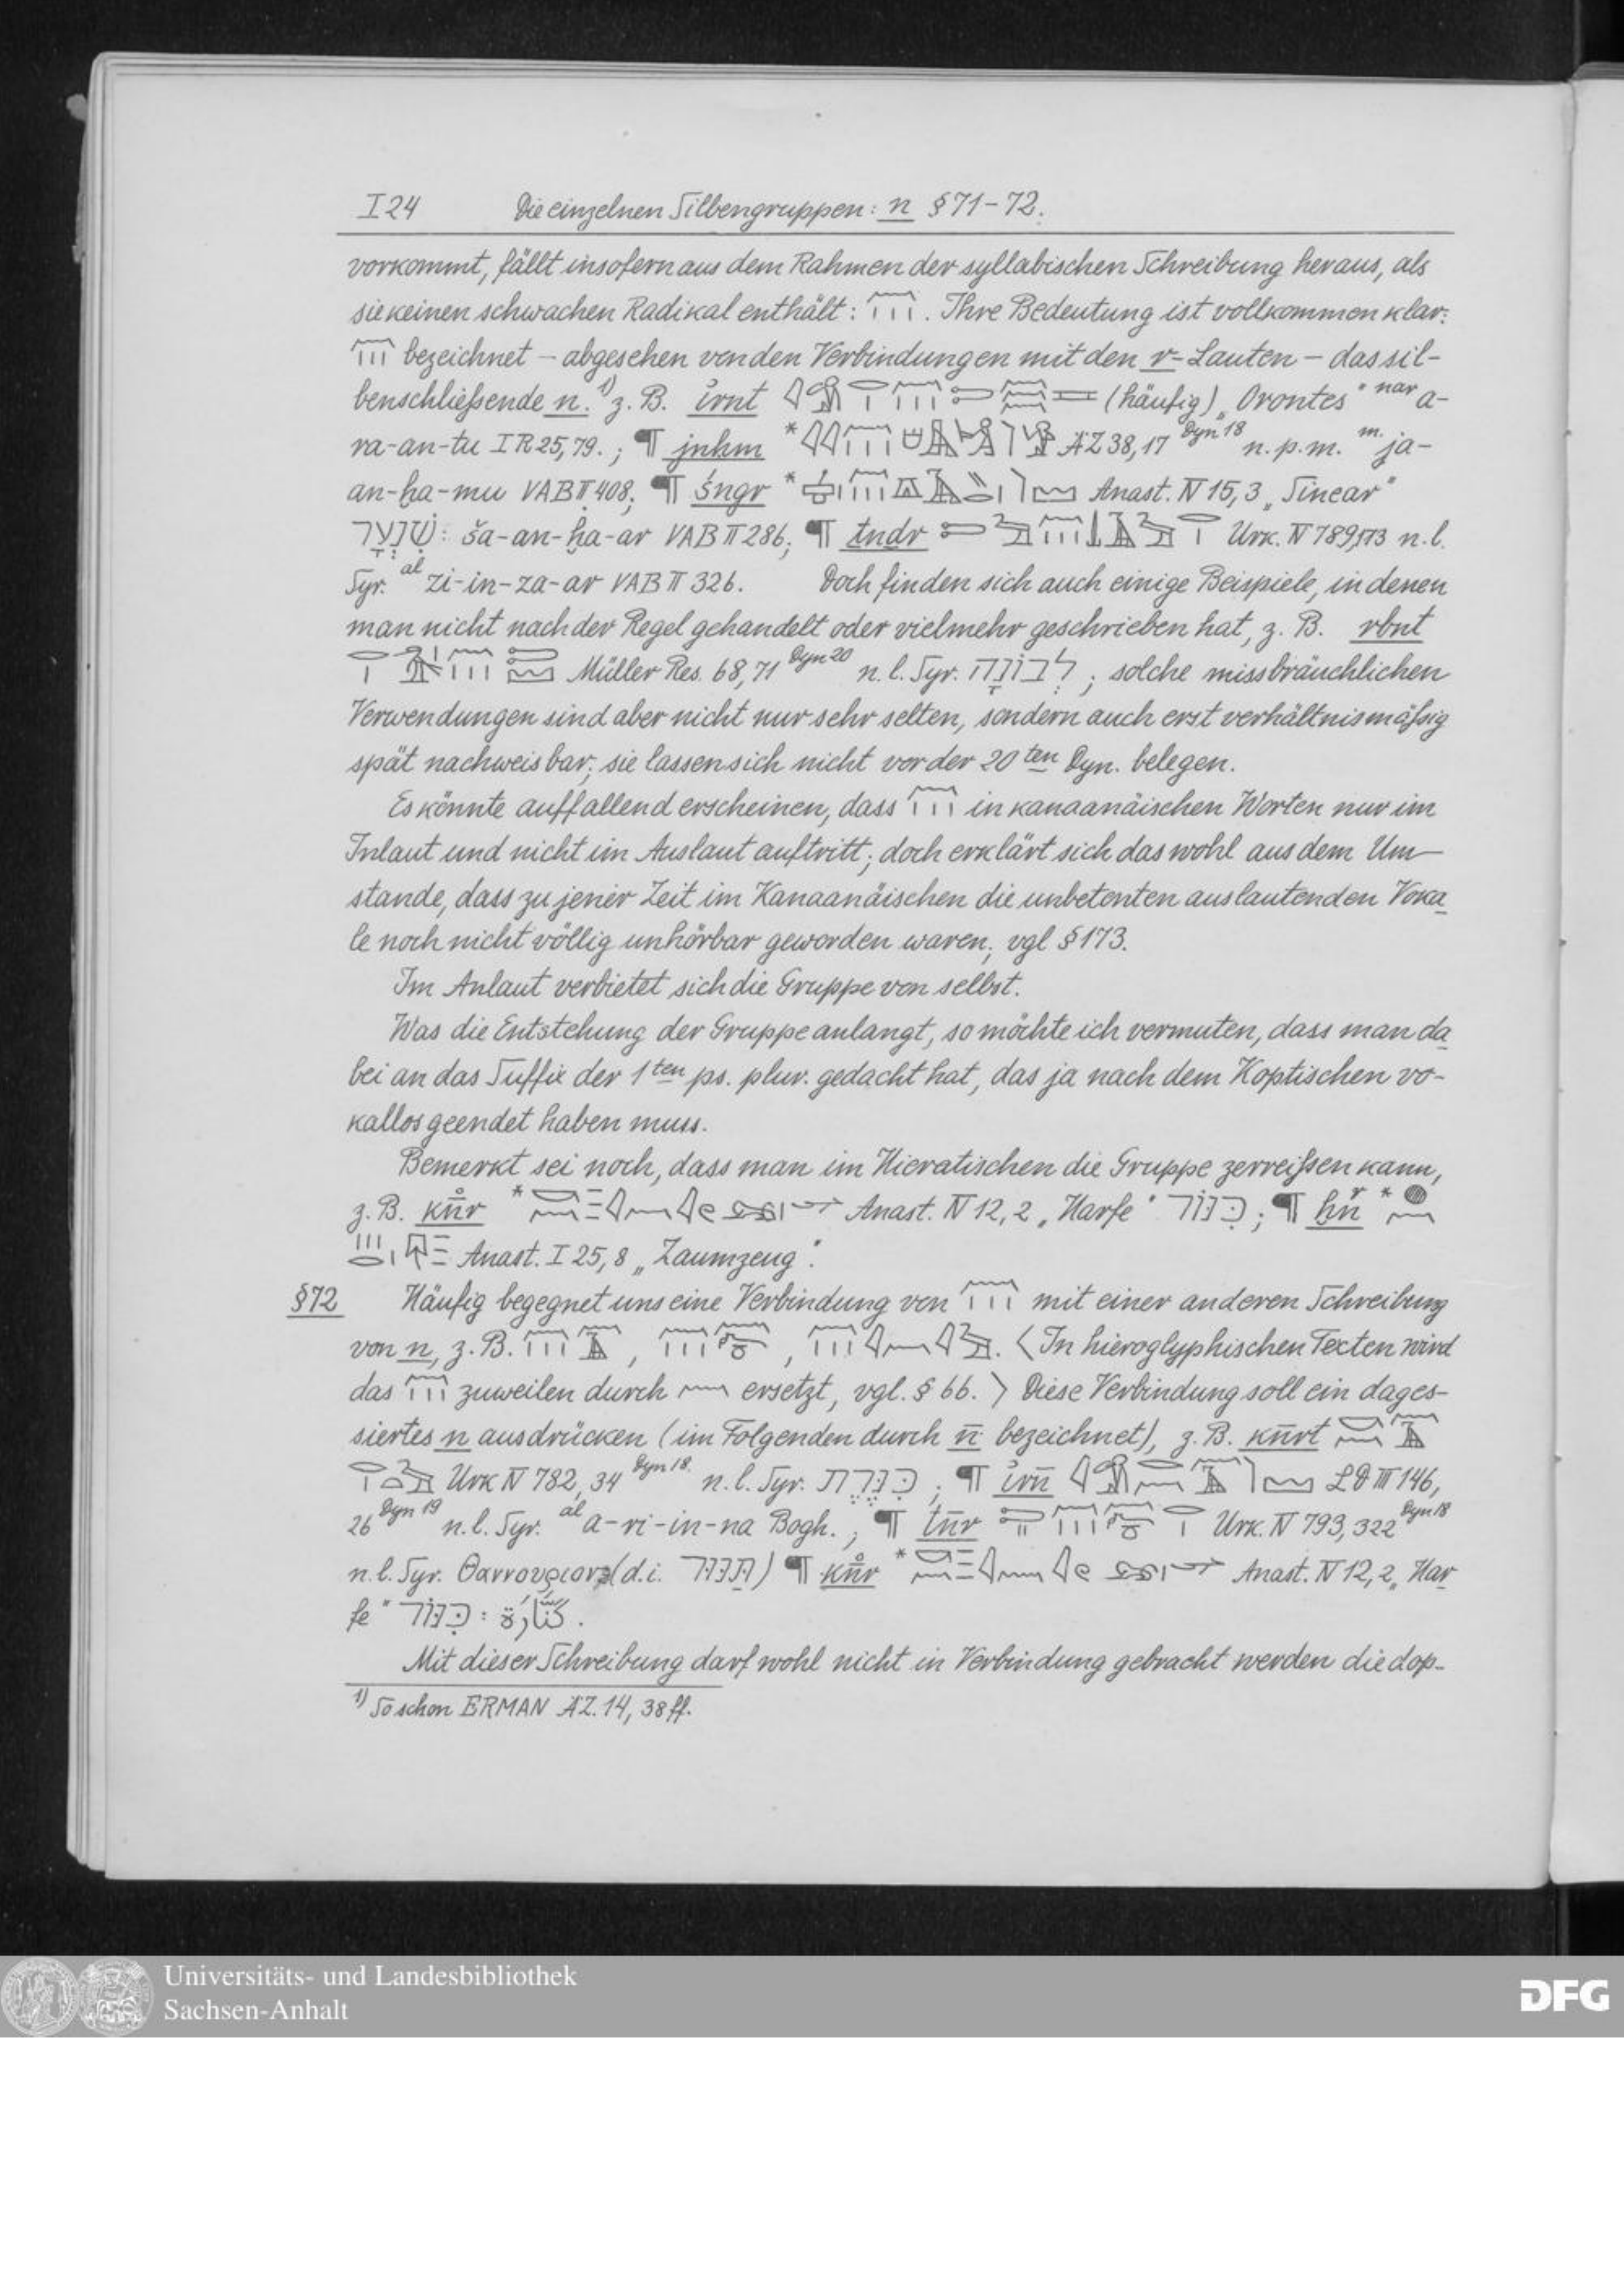 I 24 Die einzelnen Silbengruppen: n § 71-72.
vorkommt, fällt insofern aus dem Rahmen der syllabischen Schreibung heraus, als
sie keinen schwachen Radikal enthält: . Ihre Bedeutung ist vollkommen klar:
bezeichnet – abgesehen von den Verbindungen mit den r-Lauten – das sil-
benschließende n. 1) z. B. i̊rnt (häufig) „Orontes" nar a-
ra-an-tu I R 25,79. ; ¶ jnhm * ÄZ 38,17 Dyn 18 n. p. m. m. ja-
an-ḫa-mu VAB II 408; ¶ śngr * Anast. IV 15,3 „Sinear"
שִׁנְעָר: ša-an-ḫa-ar VAB II 286; ¶ tndr Urk. IV 789,173 n. l.
Syr. al zi-in-za-ar VAB II 326. Doch finden sich auch einige Beispiele, in denen
man nicht nach der Regel gehandelt oder vielmehr geschrieben hat, z. B. rbnt
Müller Res. 68,71 Dyn 20 n. l. Syr. לִבוֹנָה ; solche missbräuchlichen
Verwendungen sind aber nicht nur sehr selten, sondern auch erst verhältnismäßig
spät nachweisbar; sie lassen sich nicht vor der 20ten Dyn. belegen.
Es könnte auffallend erscheinen, dass in kanaanäischen Worten nur im
Inlaut und nicht im Auslaut auftritt; doch erklärt sich das wohl aus dem Um-
stande, dass zu jener Zeit im Kanaanäischen die unbetonten auslautenden Voka
le noch nicht völlig unhörbar geworden waren; vgl § 173.
Im Anlaut verbietet sich die Gruppe von selbst.
Was die Entstehung der Gruppe anlangt, so möchte ich vermuten, dass man da
bei an das Suffix der 1ten ps. plur. gedacht hat, das ja nach dem Koptischen vo-
kallos geendet haben muss.
Bemerkt sei noch, dass man im Hieratischen die Gruppe zerreißen kann,
z. B. kn̊̄r * Anast. IV 12,2 „Harfe" כִּנּוֹר ; ¶ *
Anast. I 25,8 „Zaumzeug".
§ 72 Häufig begegnet uns eine Verbindung von mit einer anderen Schreibung
von n, z. B. , , . ⟨In hieroglyphischen Texten wird
das zuweilen durch ersetzt, vgl. § 66.⟩ Diese Verbindung soll ein dages-
siertes n ausdrücken (im Folgenden durch n̄ bezeichnet), z. B. kn̄rt
Urk IV 782,34 Dyn 18. n. l. Syr. ; ¶ i̊rn̄ LD III 146,
26 Dyn 19 n. l. Syr. al a-ri-in-na Bogh. ; ¶ tn̄r Urk. IV 793,322 Dyn 18
n. l. Syr. (d. i. ) ¶ kn̊̄r * Anast. IV 12,2 „Har
fe" כִּנּוֹר : كنّارة .
Mit dieser Schreibung darf wohl nicht in Verbindung gebracht werden die dop-
1) So schon ERMAN ÄZ. 14, 38 ff.
Universitäts- und Landesbibliothek
Sachsen-Anhalt
DFG